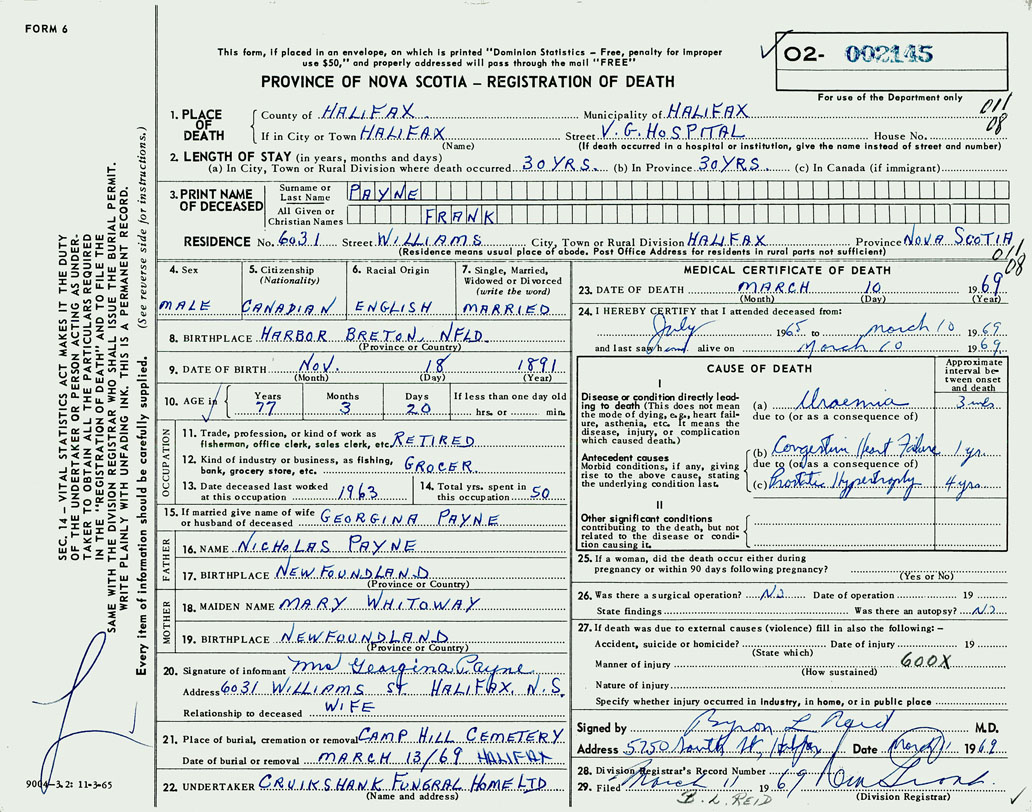 FORM 6
This form, if placed in an envelope, on which is printed "Dominion Statistics – Free, penalty for improper
use $50," and properly addressed will pass through the mail "FREE"
PROVINCE OF NOVA SCOTIA – REGISTRATION OF DEATH
O2- 002145
For use of the Department only
011
08
1. PLACE OF DEATH
County of HALIFAX Municipality of HALIFAX
If in City or Town HALIFAX Street V. G. HOSPITAL House No.
(Name) (If death occurred in a hospital or institution, give the name instead of street and number)
2. LENGTH OF STAY (in years, months and days)
(a) In City, Town or Rural Division where death occurred 30 YRS. (b) In Province 30 YRS. (c) In Canada (if immigrant)
3. PRINT NAME OF DECEASED
Surname or Last Name PAYNE
All Given or Christian Names FRANK
RESIDENCE No. 6031 Street WILLIAMS City, Town or Rural Division HALIFAX Province NOVA SCOTIA
(Residence means usual place of abode. Post Office Address for residents in rural parts not sufficient)
011
08
4. Sex
MALE
5. Citizenship (Nationality)
CANADIAN
6. Racial Origin
ENGLISH
7. Single, Married, Widowed or Divorced (write the word)
MARRIED
8. BIRTHPLACE HARBOR BRETON, NFLD.
(Province or Country)
9. DATE OF BIRTH NOV. 18 1891
(Month) (Day) (Year)
10. AGE in Years Months Days If less than one day old
77 3 20 hrs. or min.
OCCUPATION
11. Trade, profession, or kind of work as
fisherman, office clerk, sales clerk etc. RETIRED
12. Kind of industry or business, as fishing,
bank, grocery store, etc. GROCER
13. Date deceased last worked at this occupation 1963
14. Total yrs. spent in this occupation 50
15. If married give name of wife
or husband of deceased GEORGINA PAYNE
FATHER
16. NAME NICHOLAS PAYNE
17. BIRTHPLACE NEWFOUNDLAND
(Province or Country)
MOTHER
18. MAIDEN NAME MARY WHITOWAY
19. BIRTHPLACE NEWFOUNDLAND
(Province or Country)
20. Signature of informant Mrs Georgina Payne
Address 6031 WILLIAMS ST. HALIFAX, N.S.
Relationship to deceased WIFE
21. Place of burial, cremation or removal CAMP HILL CEMETERY
Date of burial or removal MARCH 13/69 HALIFAX
22. UNDERTAKER CRUIKSHANK FUNERAL HOME LTD
(Name and address)
MEDICAL CERTIFICATE OF DEATH
23. DATE OF DEATH MARCH 10 1969
(Month) (Day) (Year)
24. I HEREBY CERTIFY that I attended deceased from:
July 1965 to March 10 1969
and last saw h alive on March 10 1969.
CAUSE OF DEATH
Approximate interval between onset and death
I
Disease or condition directly leading to death (This does not mean
the mode of dying, e.g., heart failure, asthenia, etc. It means the
disease, injury, or complication
which caused death.)
(a) Uraemia 3 wks
due to (or as a consequence of)
Antecedent causes
Morbid conditions, if any, giving
rise to the above cause, stating
the underlying condition last.
(b) Congestive Heart Failure 1 yr.
due to (or as a consequence of)
(c) Prostatic Hypertrophy 4 yrs
II
Other significant conditions
contributing to the death, but not
related to the disease or condition causing it.
25. If a woman, did the death occur either during
pregnancy or within 90 days following pregnancy?
(Yes or No)
26. Was there a surgical operation? No Date of operation 19
State findings Was there an autopsy? No
27. If death was due to external causes (violence) fill in also the following: –
Accident, suicide or homicide? Date of injury 19
(State which)
Manner of injury 600X
(How sustained)
Nature of injury
Specify whether injury occurred in industry, in home, or in public place
Signed by Byron L Reid M.D.
Address 5250 South St, Halifax Date March 11 1969
28. Division Registrar's Record Number
29. Filed March 11 1969
B. L. REID (Division Registrar)
SEC. 14 – VITAL STATISTICS ACT MAKES IT THE DUTY
OF THE UNDERTAKER OR PERSON ACTING AS UNDER-
TAKER TO OBTAIN ALL THE PARTICULARS REQUIRED
IN THE "REGISTRATION OF DEATH" AND TO FILE THE
SAME WITH THE DIVISION REGISTRAR WHO SHALL ISSUE THE BURIAL PERMIT.
WRITE PLAINLY WITH UNFADING INK. THIS IS A PERMANENT RECORD.
Every item of information should be carefully supplied. (See reverse side for instructions.)
9004-3.2: 11-3-65